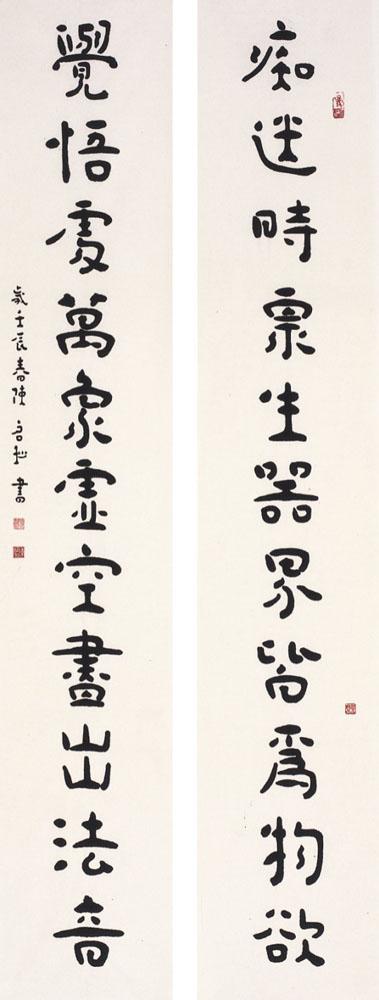 痴迷時眾生器界皆爲物欲
覺悟處萬象虛空盡出法音
歲壬辰春陳書